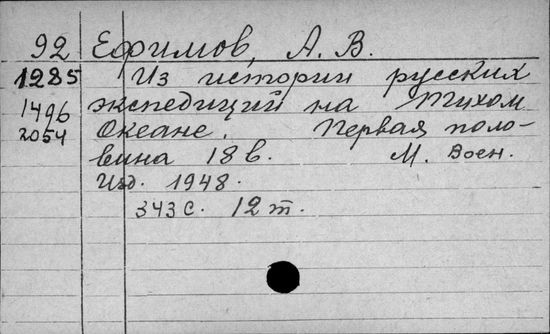 92 Ефимов, А. В.
1285 Из истории русских
1496 экспедиций на Тихом
2054 Океане. Первая поло-
вина 18 в. М. Воен.
Изд. 1948.
343 с. 12 т.